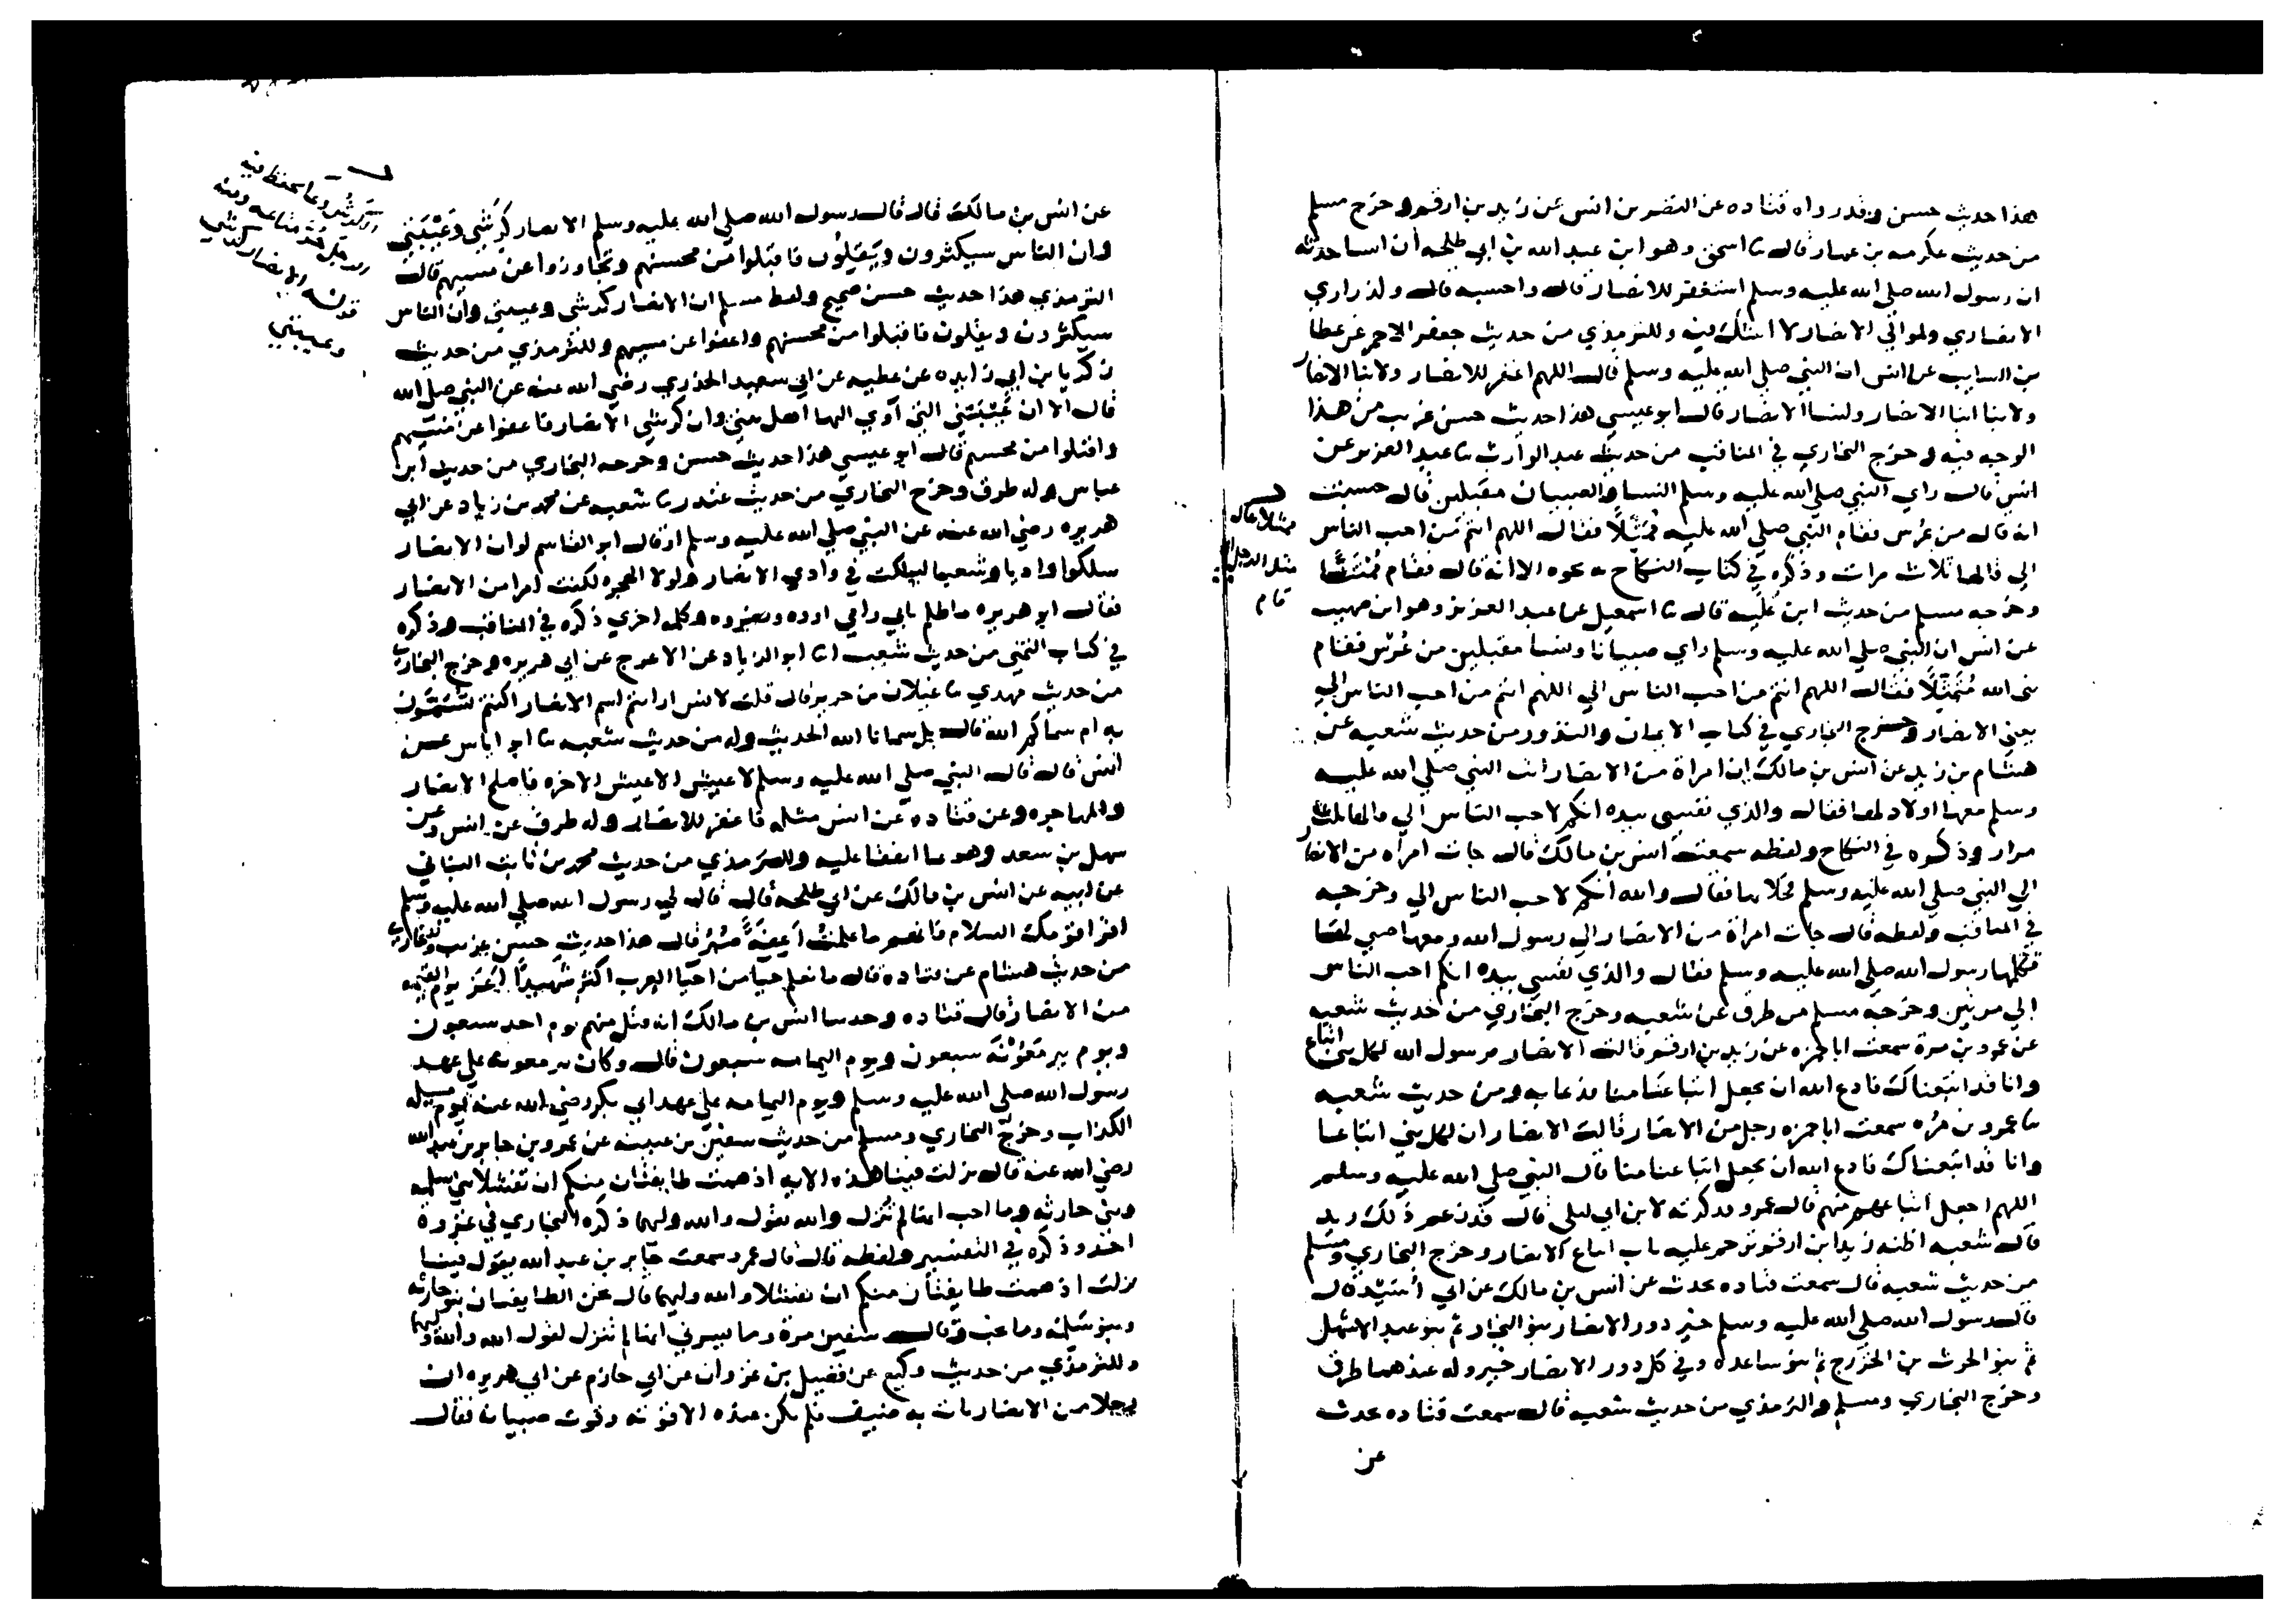 هذا حديث حسن وقد رواه قتاده عن النضر بن انس عن زيد بن ارقم وخرج مسلم
من حديث عكرمه بن عمار قال نا اسحق وهو ابن عبد الله بن ابي طلحه ان انسا حدثه
ان رسول الله صلي الله عليه وسلم استغفر للانصار قال واحسبه قال ولذراري
الانصاري ولموالي الانصار لا اشك فيه وللترمذي من حديث جعفر الاحمر عن عطا
بن السايب عن انس ان النبي صلي الله عليه وسلم قال اللهم اغفر للانصار ولابنا الانصار
ولابنا ابنا الانصار ولنسا الانصار قال ابو عيسي هذا حديث حسن غريب من هذا
الوجه فيه وخرج البخاري في المناقب من حديث عبد الوارث نا عبد العزيز عن
انس قال راي النبي صلي الله عليه وسلم النسا والصبيان مقبلين قال حسبت
انه قال من عُرس فقام النبي صلي الله عليه مُمَثِّلاً فقال اللهم انتم من احب الناس
الي قالها ثلاث مرات وذكره في كتاب النكاح نحوه الا انه قال فقام مُمْتَنًّا
وخرجه مسلم من حديث ابن عُلَيه قال نا اسمعيل عن عبد العزيز وهو ابن صهيب
عن انس ان النبي صلي الله عليه وسلم راي صبيانا ونسا مقبلين من عُرس فقام
نبي الله مُمَثِّلاً فقال اللهم انتم من احب الناس الي اللهم انتم من احب الناس الي
يعني الانصار وخرج البخاري في كتاب الايمان والنذور من حديث شعبه عن
هشام بن زيد عن انس بن مالك ان امراة من الانصار اتت النبي صلي الله عليه
وسلم معها اولاد لها فقال والذي نفسي بيده انكم لاحب الناس الي قالها ثلث
مرار وذكره في النكاح ولفظه سمعت انس بن مالك قال جات امراه من الانصار
الي النبي صلي الله عليه وسلم فخلا بها فقال والله انكم لاحب الناس الي وخرجه
في المناقب ولفظه قال جات امراة من الانصار الي رسول الله ومعها صبي لها
فكلمها رسول الله صلي الله عليه وسلم فقال والذي نفسي بيده انكم احب الناس
الي مرتين وخرجه مسلم من طرق عن شعبه وخرج البخاري من حديث شعبه
عن عمرو بن مرة سمعت ابا حمزه عن زيد بن ارقم قالت الانصار يرسول الله لكل نبي اتباع
وانا قد اتبعناك فادع الله ان يجعل اتباعنا منا فدعا به ومن حديث شعبه
نا عمرو بن مُره سمعت ابا حمزه رجل من الانصار قالت الانصار ان لكل نبي اتباعا
وانا قد اتبعناك فادع الله ان يجعل اتباعنا منا قال النبي صلي الله عليه وسلم
اللهم اجعل اتباعهم منهم قال عمرو فذكرته لابن ابي ليلي قال قد زعم ذلك زيد
قال شعبه اظنه زيد ابن ارقم ترجم عليه باب اتباع الانصار وخرج البخاري ومسلم
من حديث شعبه قال سمعت قتاده يحدث عن انس بن مالك عن ابي اُسَيْد قال
قال رسول الله صلي الله عليه وسلم خير دور الانصار بنو النجار ثم بنو عبد الاشهل
ثم بنو الحرث بن الخزرج ثم بنو ساعده وفي كل دور الانصار خير وله عندهما طرق
وخرج البخاري ومسلم والترمذي من حديث شعبه قال سمعت قتاده يحدث
عن
ممثلا يقال
مثل الرجل
قام
عن انس بن مالك قال قال رسول الله صلي الله عليه وسلم الانصار كَرِشي وعَيْبَتي
وان الناس سيكثرون ويَقِلُون فاقبلوا من محسنهم وتجاوزوا عن مسيهم قال
الترمذي هذا حديث حسن صحيح ولفظ مسلم ان الانصار كرشي وعيبتي وان الناس
سيكثرون ويقلون فاقبلوا من محسنهم واعفوا عن مسيهم وللترمذي من حديث
زكريا بن ابي زايده عن عطيه عن ابي سعيد الخدري رضي الله عنه عن النبي صلي الله
قال الا ان عَيْبَتي التي آوي اليها اهل بيتي وان كرشي الانصار فاعفوا عن مسيهم
واقبلوا من محسنهم قال ابو عيسي هذا حديث حسن وخرجه البخاري من حديث ابن
عباس وله طرق وخرج البخاري من حديث غندر نا شعبه عن محمد بن زياد عن ابي
هريره رضي الله عنه عن النبي صلي الله عليه وسلم او قال ابو القاسم لو ان الانصار
سلكوا واديا وشعبا لسلكت في وادي الانصار ولولا الهجره لكنت امرا من الانصار
فقال ابو هريره ما ظلم بابي وامي اووه ونصروه وكلمه اخري ذكره في المناقب وذكره
في كتاب التمني من حديث شعيب انا ابو الزناد عن الاعرج عن ابي هريره وخرج البخاري
من حديث مهدي نا غيلان بن جرير قال قلت لانس ارايتم اسم الانصار اكنتم تُسَمَّون
به ام سماكم الله قال بل سمانا الله الحديث وله من حديث شعبه نا ابو اياس عن
انس قال قال النبي صلي الله عليه وسلم لا عيش الا عيش الاخره فاصلح الانصار
والمهاجره وعن قتاده عن انس مثله فاغفر للانصار وله طرق عن انس وعن
سهل بن سعد وهو مما اتفقا عليه وللترمذي من حديث محمد بن ثابت البناني
عن ابيه عن انس بن مالك عن ابي طلحه قال قال لي رسول الله صلي الله عليه وسلم
اقرا قومك السلام فانهم ما علمت اَعِفَّةٌ صُبُرٌ قال هذا حديث حسن غريب وللبخاري
من حديث هشام عن قتاده قال ما نعلم حيا من احيا العرب اكثر شهيدًا اَعَزّ يوم القيمه
من الانصار قال قتاده وحدثنا انس بن مالك انه قتل منهم يوم احد سبعون
ويوم بير مَعُوْنَةَ سبعون ويوم اليمامه سبعون قال وكان بير معونه علي عهد
رسول الله صلي الله عليه وسلم ويوم اليمامه علي عهد ابي بكر رضي الله عنه يوم مسيلمه
الكذاب وخرج البخاري ومسلم من حديث سفين بن عيينه عن عمرو بن جابر بن عبد الله
رضي الله عنه قال نزلت فينا هذه الايه اذ همت طايفتان منكم ان تفشلا بني سلمه
وبني حارثه وما احب انها لم تُنزل والله يقول والله وليهما ذكره البخاري في غزوة
احد وذكره في التفسير ولفظه قال قال عمرو سمعت جابر بن عبد الله يقول فينا
نزلت اذ همت طايفتان منكم ان تفشلا والله وليهما قال نحن الطايفتان بنو حارثه
وبنو سَلِمَة وما نحب وقال سفين مرة وما يسرني انها لم تنزل لقول الله والله وليهما
وللترمذي من حديث وكيع عن فضيل بن غزوان عن ابي حازم عن ابي هريره ان
رجلا من الانصار بات به ضيف فلم يكن عنده الا قوته وقوت صبيانه فقال
وعيبتي